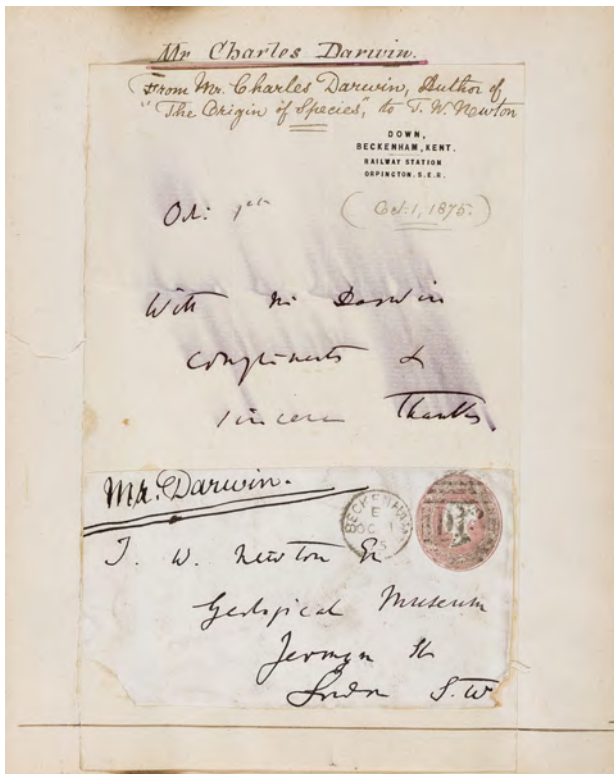 Mr Charles Darwin.
From Mr. Charles Darwin, Author of
"The Origin of Species", to T. W. Newton
DOWN,
BECKENHAM, KENT.
RAILWAY STATION
ORPINGTON. S.E.R.
Oct: 1st
(Oct: 1, 1875.)
With Mr Darwin
compliments &
sincere Thanks
Mr. Darwin.
BECKENHAM
E
OC 1
75
T. W. Newton Esq
Geological Museum
Jermyn St
London S.W